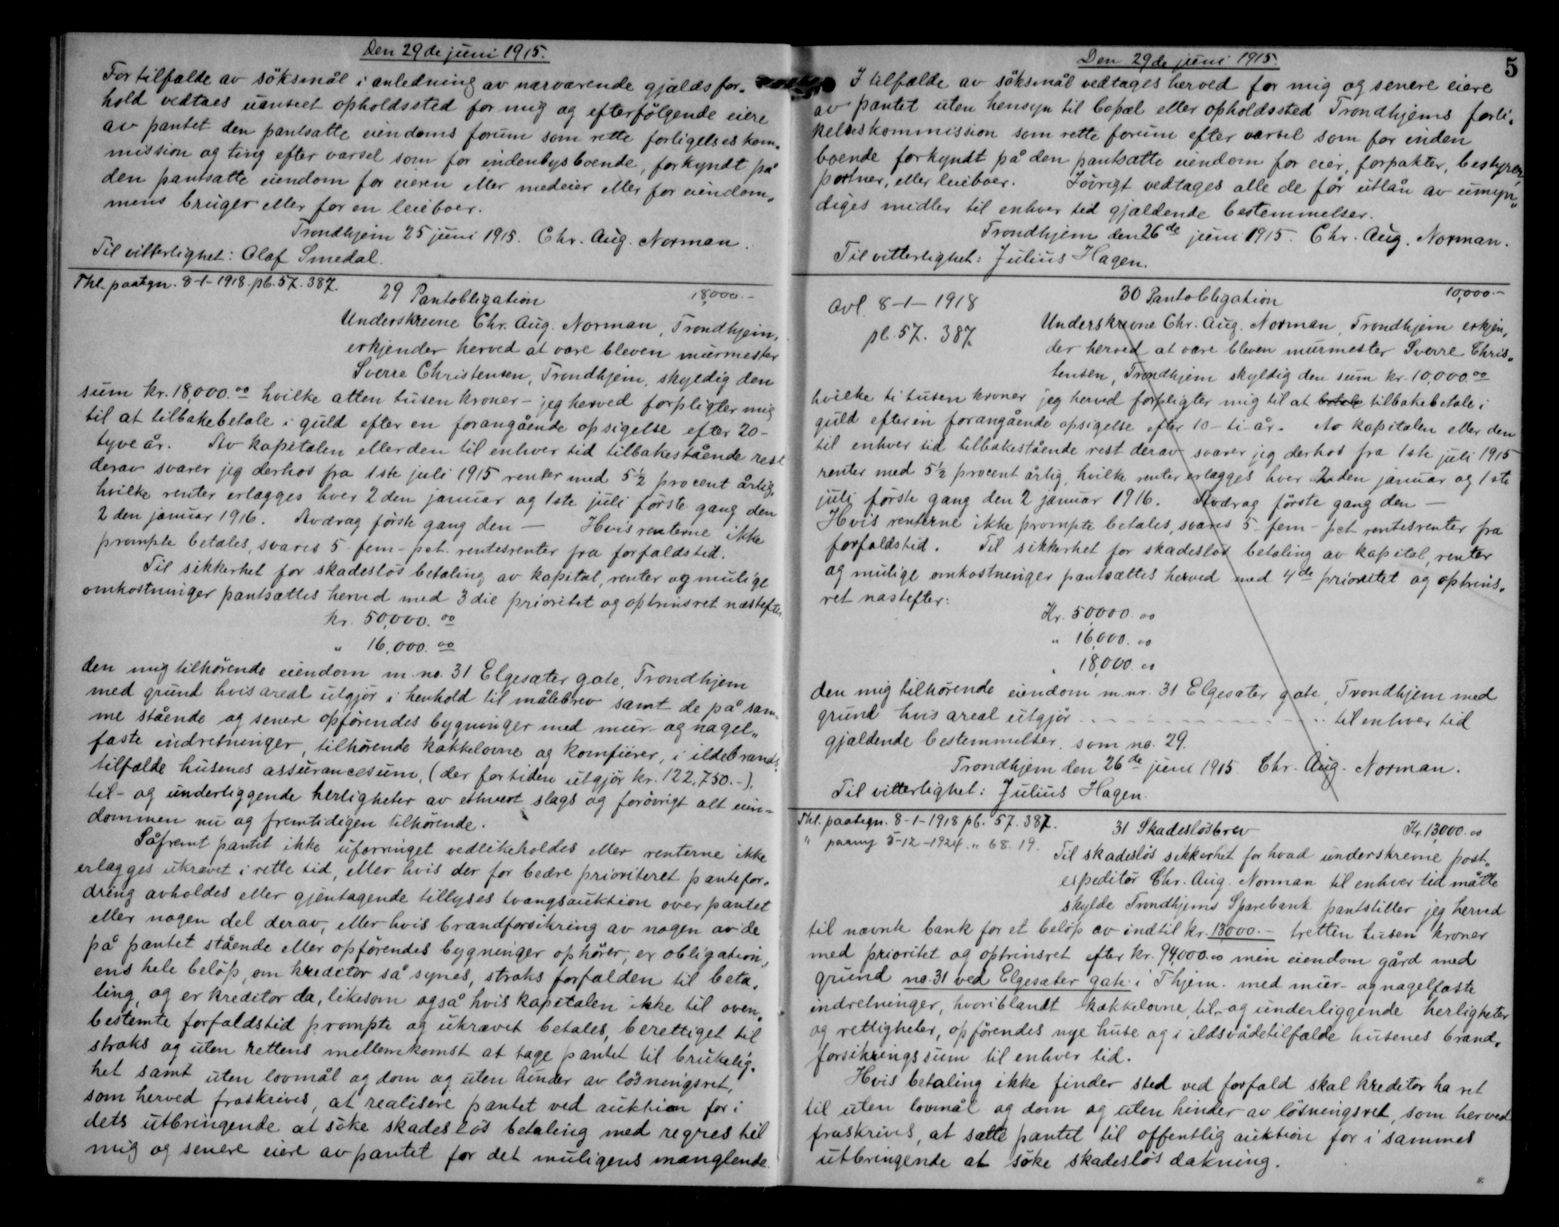 Den 29de juni 1915.
For tilfælde av söksmål i anledning av nærværende gjældsfor-
hold vedtaes uanseet opholdssted for mig og efterfölgende eiere
av pantet den pantsatte eiendoms forum som rette forligelseskom-
mission og ting efter varsel som for indenbysboende, forkyndt på
den pantsatte eiendom for eieren eller medeier eller for eiendom-
mens bruger eller for en leieboer.
Trondhjem 25 juni 1915. Chr. Aug. Norman.
Til vitterlighet: Olaf Smedal.
Thl. paategn. 8-1-1918. pb. 57. 387.
29 Pantobligation 18,000.-
Underskrevne Chr. Aug. Norman, Trondhjem,
erkjender herved at være bleven murmester
Sverre Christensen, Trondhjem, skyldig den
sum kr. 18,000.00 hvilke atten tusen kroner - jeg herved forpligter mig
til at tilbakebetale i guld efter en forangående opsigelse efter 20-
tyve år. Av kapitalen eller den til enhver tid tilbakestående rest
derav svarer jeg derhos fra 1ste juli 1915 renter med 5 1/2 procent årlig,
hvilke renter erlægges hver 2den januar og 1ste juli förste gang den
2den januar 1916. Avdrag förste gang den — Hvis renterne ikke
prompte betales, svares 5 - fem - pct. rentesrenter fra forfaldstid.
Til sikkerhet for skadeslös betaling av kapital, renter og mulige
omkostninger pantsættes herved med 3die prioritet og optrinsret næstefter
kr. 50,000.00
" 16,000.00
den mig tilhörende eiendom m. no. 31 Elgesæter gate, Trondhjem
med grund hvis areal utgjör i henhold til målebrev samt de på sam-
me stående og senere opförendes bygninger med mur- og nagel-
faste indretninger, tilhörende kakkelovne og komfürer, i ildebrands-
tilfælde husenes assurancesum, (der for tiden utgjör kr. 122,750.-),
til- og underliggende herligheter av ethvert slags og forövrigt alt eien-
dommen nu og fremtidigen tilhörende.
Såfremt pantet ikke uforringet vedlikeholdes eller renterne ikke
erlægges ukrævet i rette tid, eller hvis der for bedre prioriteret pantefor-
dring avholdes eller gjentagende tillyses tvangsauktion over pantet
eller nogen del derav, eller hvis brandforsikring av nogen av de
på pantet stående eller opförendes bygninger ophörer, er obligation-
ens hele belöp, om kreditor så synes, straks forfalden til beta-
ling, og er kreditor da, likesom også hvis kapitalen ikke til oven-
bestemte forfaldstid prompte og ukrævet betales, berettiget til
straks og uten rettens mellemkomst at tage pantet til brukelig-
het samt uten lovmål og dom og uten hinder av lösningsret,
som herved fraskrives, at realisere pantet ved auktion for i
dets utbringende at söke skadeslös betaling med regres til
mig og senere eiere av pantet for det muligens manglende.
Den 29de juni 1915.
5
I tilfælde av söksmål vedtages herved for mig og senere eiere
av pantet uten hensyn til bopæl eller opholdssted Trondhjems forli-
kelseskommission som rette forum efter varsel som for inden
boende forkyndt på den pantsatte eiendom for eier, forpakter, bestyrer,
portner, eller leieboer. Iövrigt vedtages alle de för utlån av umyn-
diges midler til enhver tid gjældende bestemmelser.
Trondhjem den 26de juni 1915. Chr. Aug. Norman.
Til vitterlighet: Julius Hagen.
Avl. 8-1-1918
pb. 57. 387
30 Pantobligation 10,000.-
Underskrevne Chr. Aug. Norman, Trondhjem erkjen-
der herved at være bleven murmester Sverre Chris-
tensen, Trondhjem skyldig den sum kr. 10,000.00
hvilke ti tusen kroner jeg herved forpligter mig til at betale tilbakebetale i
guld efter en forangående opsigelse efter 10-ti-år. Av kapitalen eller den
til enhver tid tilbakestående rest derav svarer jeg derhos fra 1ste juli 1915
renter med 5 1/2 procent årlig, hvilke renter erlægges hver 2den januar og 1ste
juli förste gang den 2 januar 1916. Avdrag förste gang den —
Hvis renterne ikke prompte betales, svares 5 - fem - pct rentesrenter fra
forfaldstid. Til sikkerhet for skadeslös betaling av kapital, renter
og mulige omkostninger pantsættes herved med 4de prioritet og optrins-
ret næstefter:
Kr. 50,000.00
" 16,000.00
" 18,000.00
den mig tilhörende eiendom m. nr. 31 Elgesæter gate, Trondhjem med
grund hvis areal utgjör - - - - - - - - til enhver tid
gjældende bestemmelser. som no. 29.
Trondhjem den 26de juni 1915 Chr. Aug. Norman.
Til vitterlighet: Julius Hagen.
Thl. paategn. 8-1-1918 pb. 57. 387.
" 5-12-1924. " 68. 19.
31 Skadeslösbrev Kr. 13,000.00
Til skadeslös sikkerhet for hvad underskrevne post-
expeditör Chr. Aug. Norman til enhver tid måtte
skylde Trondhjems Sparebank pantstiller jeg herved
til nævnte bank for et belöp av indtil kr. 13000.- tretten tusen kroner
med prioritet og optrinsret efter kr. 94,000.00 min eiendom gård med
grund no. 31 ved Elgesæter gate i Thjem. med mur- og nagelfaste
indretninger, hvoriblandt kakkelovne, til- og underliggende herligheter
og rettigheter, opförendes nye huse og i ildsvådetilfælde husenes brand-
forsikringssum til enhver tid.
Hvis betaling ikke finder sted ved forfald skal kreditor ha ret
til uten lovmål og dom og uten hinder av lösningsret, som herved
fraskrives, at sætte pantet til offentlig auktion for i sammes
utbringende at söke skadeslös dækning.